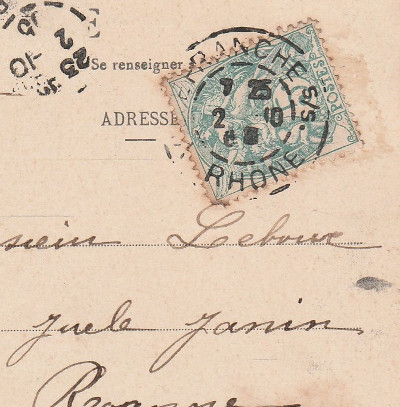 25
2
10
Se renseigner
ADRESSE
FRANCHE S/S
7 25
2 10
RHONE
POSTES
sieur Leboux
Jule Janin
Roanne